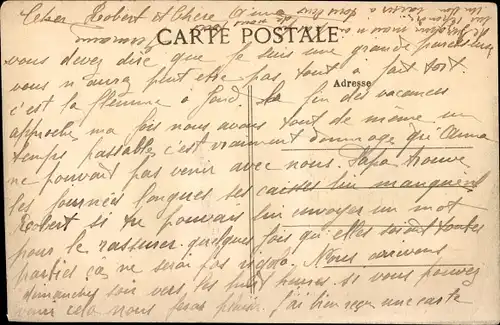 Cher Robert et Chère Anna
CARTE POSTALE
vous devez dire que je suis une grande paresseuse
vous n'aurez peut être pas tout à fait tort.
Adresse
c'est la flemme à fond. La fin des vacances
approche ma fois nous avons tout de même un
temps passable c'est vraiment dommage qu'Anna
ne pouvait pas venir avec nous. Papa trouve
les journées longues ses caisses lui manquent
Robert si tu pouvais lui envoyer un mot
pour le rassurer quelques fois qu'elles soient toutes
parties ça ne serai pas rigolo. Nous arrivons
dimanche soir vers les huit heures si vous pouvez
venir cela nous feras plaisir. j'ai bien reçu une carte